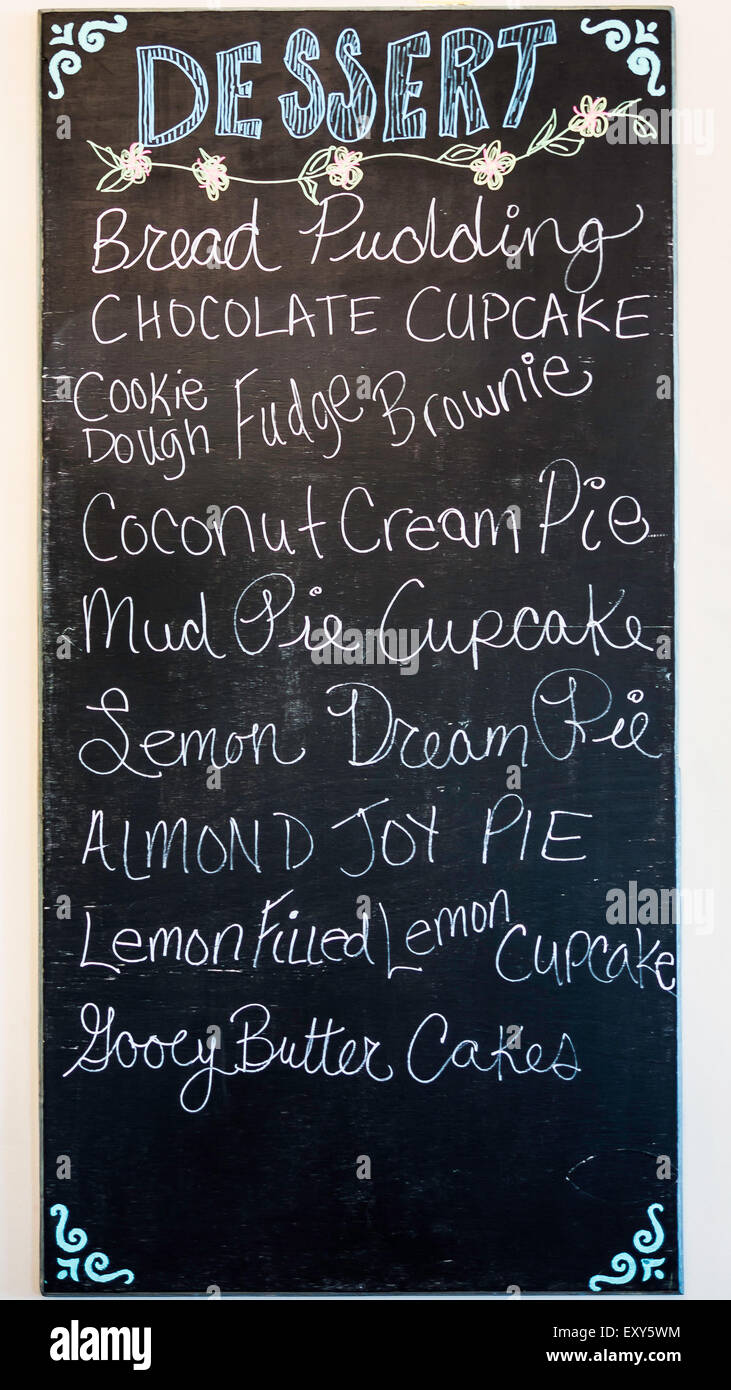 DESSERT
Bread Pudding
CHOCOLATE CUPCAKE
Cookie Dough Fudge Brownie
Coconut Cream Pie
Mud Pie Cupcake
Lemon Dream Pie
ALMOND JOY PIE
Lemon Filled Lemon Cupcake
Gooey Butter Cakes
alamy stock photo
EXY5WM
www.alamy.com